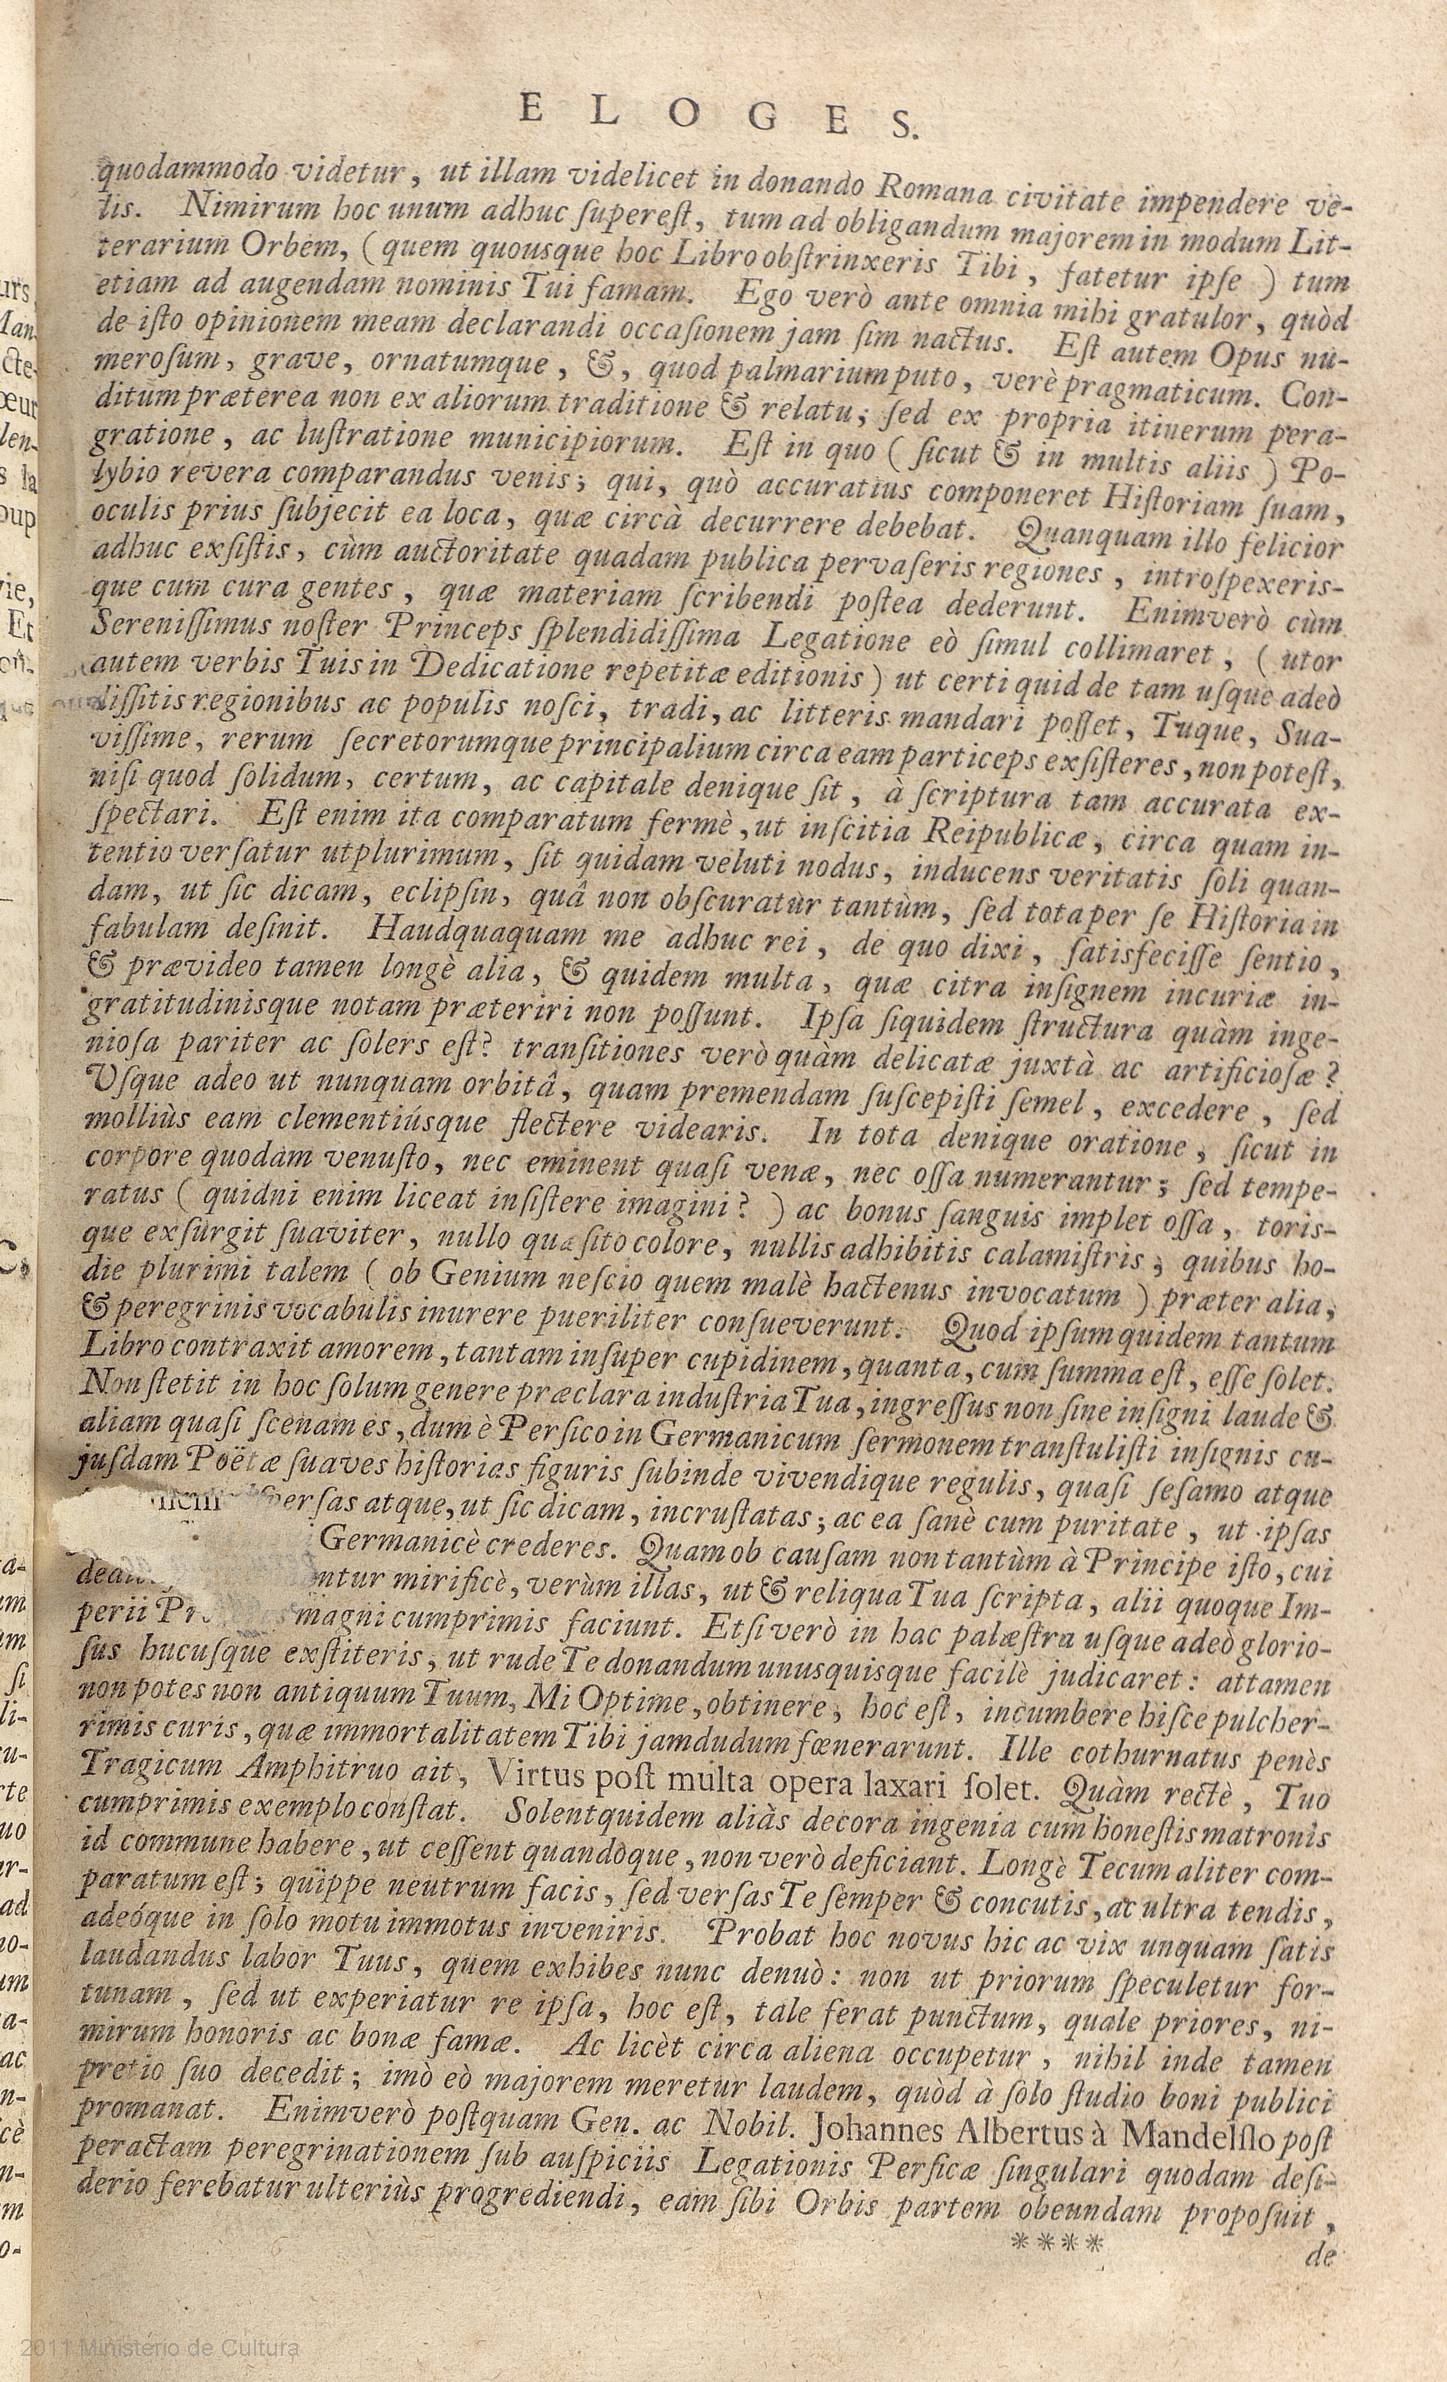 ELOGES.
quodammodo videtur, ut illam videlicet in donando Romana civitate impendere ve-
lis. Nimirum hoc unum adhuc ſupereſt, tum ad obligandum majorem in modum Lit-
terarium Orbem, (quem quousque hoc Libro obſtrinxeris Tibi, fatetur ipſe) tum
etiam ad augendam nominis Tui famam. Ego verò ante omnia mihi gratulor, quòd
de iſto opinionem meam declarandi occaſionem jam ſim nactus. Eſt autem Opus nu-
meroſum, grave, ornatumque, &, quod palmarium puto, verè pragmaticum. Con-
ditum præterea non ex aliorum traditione & relatu; ſed ex propria itinerum pera-
gratione, ac luſtratione municipiorum. Eſt in quo (ſicut & in multis aliis) Po-
lybio revera comparandus venis; qui, quò accuratius componeret Hiſtoriam ſuam,
oculis prius ſubjecit ea loca, quæ circà decurrere debebat. Quanquam illo felicior
adhuc exſiſtis, cùm auctoritate quadam publica pervaſeris regiones, introſpexeris-
que cum cura gentes, quæ materiam ſcribendi poſtea dederunt. Enimverò cùm
Sereniſſimus noſter Princeps ſplendidiſſima Legatione eò ſimul collimaret, (utor
autem verbis Tuis in Dedicatione repetitæ editionis) ut certi quid de tam uſque adeò
diſſitis regionibus ac populis noſci, tradi, ac litteris mandari poſſet, Tuque, Sua-
viſſime, rerum ſecretorumque principalium circa eam particeps exſiſteres, non poteſt,
niſi quod ſolidum, certum, ac capitale denique ſit, à ſcriptura tam accurata ex-
ſpectari. Eſt enim ita comparatum fermè, ut inſcitia Reipublicæ, circa quam in-
tentio verſatur utplurimum, ſit quidam veluti nodus, inducens veritatis ſoli quan-
dam, ut ſic dicam, eclipſin, quâ non obſcuratur tantùm, ſed tota per ſe Hiſtoria in
fabulam deſinit. Haudquaquam me adhuc rei, de quo dixi, ſatisfeciſſe ſentio,
& prævideo tamen longè alia, & quidem multa, quæ citra inſignem incuriæ in-
gratitudinisque notam præteriri non poſſunt. Ipſa ſiquidem ſtructura quàm inge-
nioſa pariter ac ſolers eſt? tranſitiones verò quàm delicatæ juxtà ac artificioſæ?
Uſque adeo ut nunquam orbitâ, quam premendam ſuſcepiſti ſemel, excedere, ſed
molliùs eam clementiúsque flectere videaris. In tota denique oratione, ſicut in
corpore quodam venuſto, nec eminent quaſi venæ, nec oſſa numerantur; ſed tempe-
ratus (quidni enim liceat inſiſtere imagini?) ac bonus ſanguis implet oſſa, toris-
que exſurgit ſuaviter, nullo quæſito colore, nullis adhibitis calamiſtris; quibus ho-
die plurimi talem (ob Genium neſcio quem malè hactenus invocatum) præter alia,
& peregrinis vocabulis inurere pueriliter conſueverunt. Quod ipſum quidem tantum
Libro contraxit amorem, tantam inſuper cupidinem, quanta, cum ſumma eſt, eſſe ſolet.
Non ſtetit in hoc ſolum genere præclara induſtria Tua, ingreſſus non ſine inſigni laude &
aliam quaſi ſcenam es, dum è Perſico in Germanicum ſermonem tranſtuliſti inſignis cu-
jusdam Poëtæ ſuaves hiſtorias figuris ſubinde vivendique regulis, quaſi ſeſamo atque
ſperſas atque, ut ſic dicam, incruſtatas; ac ea ſanè cum puritate, ut ipſas
Germanicè crederes. Quam ob cauſam non tantùm à Principe iſto, cui
ntur mirificè, verùm illas, ut & reliqua Tua ſcripta, alii quoque Im-
perii Pr magni cumprimis faciunt. Etſi verò in hac palæſtra uſque adeò glorio-
ſus hucuſque exſtiteris, ut rude Te donandum unusquisque facilè judicaret: attamen
non potes non antiquum Tuum, Mi Optime, obtinere, hoc eſt, incumbere hiſce pulcher-
rimis curis, quæ immortalitatem Tibi jamdudum fœnerarunt. Ille cothurnatus penès
Tragicum Amphitruo ait, Virtus poſt multa opera laxari ſolet. Quàm rectè, Tuo
cumprimis exemplo conſtat. Solent quidem aliàs decora ingenia cum honeſtis matronis
id commune habere, ut ceſſent quandoque, non verò deficiant. Longè Tecum aliter com-
paratum eſt; quippe neutrum facis, ſed verſas Te ſemper & concutis, ac ultra tendis,
adeóque in ſolo motu immotus inveniris. Probat hoc novus hic ac vix unquam ſatis
laudandus labor Tuus, quem exhibes nunc denuò: non ut priorum ſpeculetur for-
tunam, ſed ut experiatur re ipſa, hoc eſt, tale ferat punctum, quale priores, ni-
mirum honoris ac bonæ famæ. Ac licèt circa aliena occupetur, nihil inde tamen
pretio ſuo decedit; imò eò majorem meretur laudem, quòd à ſolo ſtudio boni publici
promanat. Enimverò poſtquam Gen. ac Nobil. Johannes Albertus à Mandelſlo poſt
peractam peregrinationem ſub auſpiciis Legationis Perſicæ ſingulari quodam deſi-
derio ferebatur ulteriùs progrediendi, eam ſibi Orbis partem obeundam propoſuit,
**** de
2011 Ministerio de Cultura